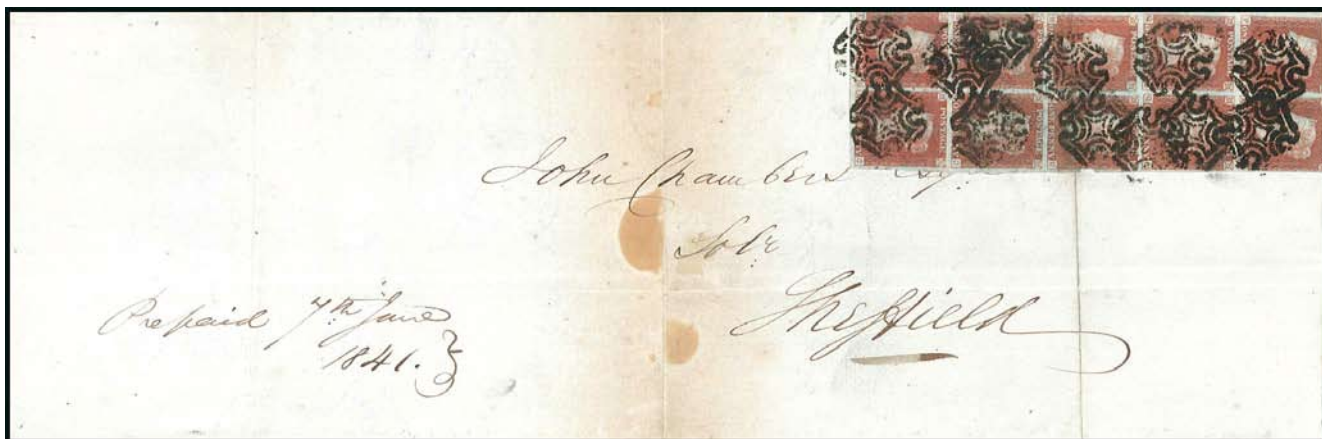 John Chambers Esqre
Solr
Sheffield
Prepaid 7th June
1841.
POSTAGE